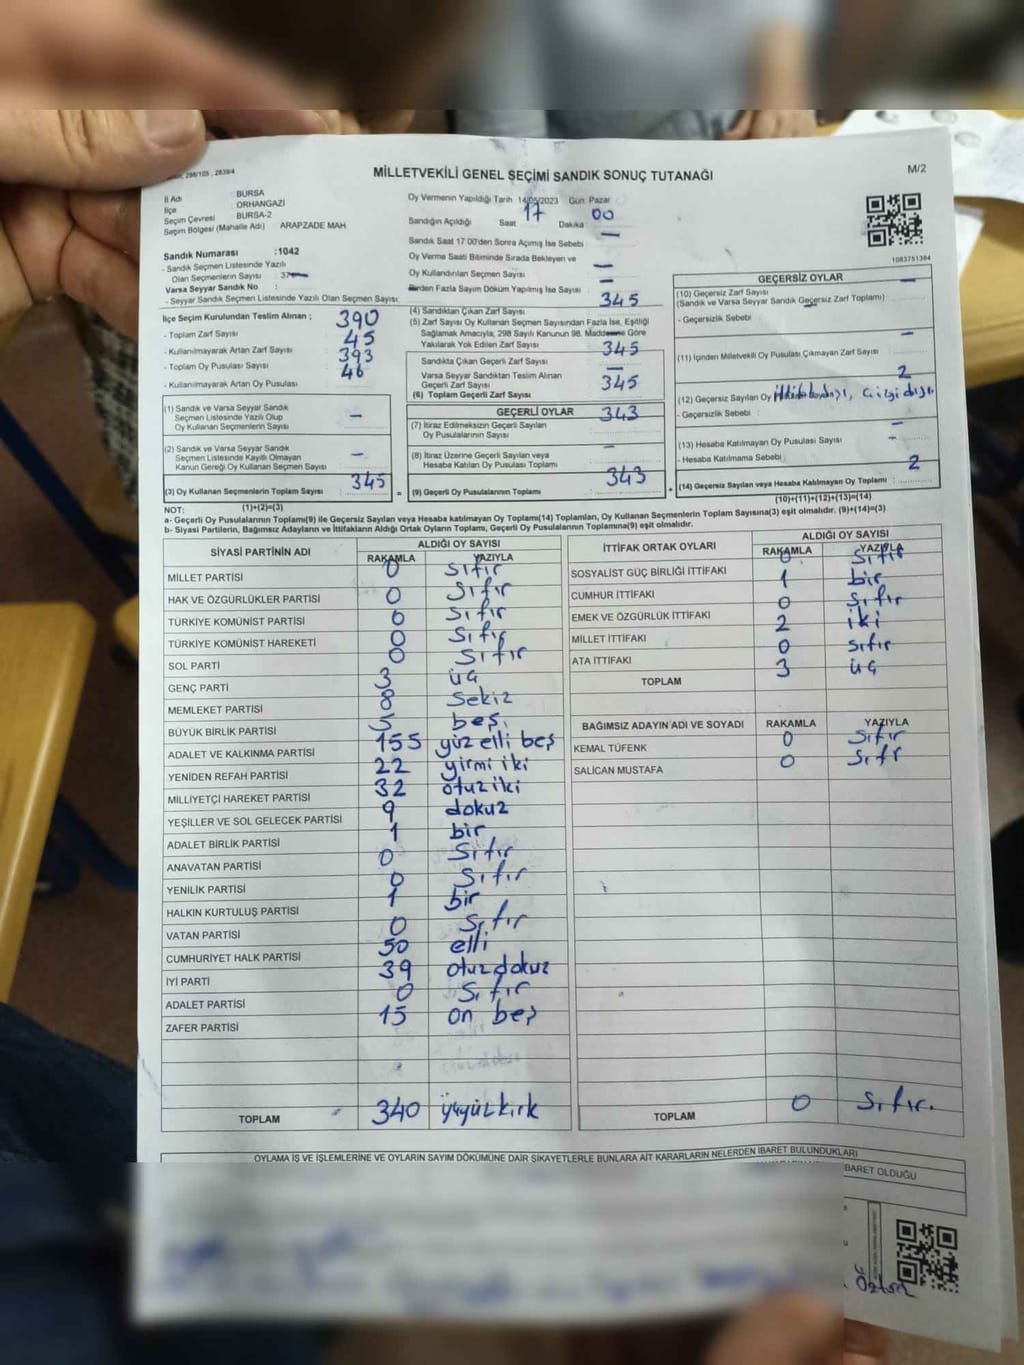 298/105 , 2839/4
MİLLETVEKİLİ GENEL SEÇİMİ SANDIK SONUÇ TUTANAĞI
M/2
İl Adı : BURSA
İlçe : ORHANGAZİ
Seçim Çevresi : BURSA-2
Seçim Bölgesi (Mahalle Adı) : ARAPZADE MAH
Oy Vermenin Yapıldığı Tarih 14/05/2023 Gün Pazar
Sandığın Açıldığı Saat 17 Dakika 00
Sandık Saat 17:00'den Sonra Açımış İse Sebebi —
Oy Verme Saati Bitiminde Sırada Bekleyen ve
Oy Kullandırılan Seçmen Sayısı —
Birden Fazla Sayım Döküm Yapılmış İse Sayısı —
1083751364
Sandık Numarası :1042
- Sandık Seçmen Listesinde Yazılı
Olan Seçmenlerin Sayısı : 37
Varsa Seyyar Sandık No :
- Seyyar Sandık Seçmen Listesinde Yazılı Olan Seçmen Sayısı:
İlçe Seçim Kurulundan Teslim Alınan ;
- Toplam Zarf Sayısı 390
- Kullanılmayarak Artan Zarf Sayısı 45
- Toplam Oy Pusulası Sayısı 393
- Kullanılmayarak Artan Oy Pusulası 46
(1) Sandık ve Varsa Seyyar Sandık
Seçmen Listesinde Yazılı Olup
Oy Kullanan Seçmenlerin Sayısı —
(2) Sandık ve Varsa Seyyar Sandık
Seçmen Listesinde Kayıtlı Olmayan
Kanun Gereği Oy Kullanan Seçmen Sayısı —
(3) Oy Kullanan Seçmenlerin Toplam Sayısı : 345
(4) Sandıktan Çıkan Zarf Sayısı 345
(5) Zarf Sayısı Oy Kullanan Seçmen Sayısından Fazla İse, Eşitliği
Sağlamak Amacıyla; 298 Sayılı Kanunun 98. Maddesine Göre
Yakılarak Yok Edilen Zarf Sayısı —
Sandıkta Çıkan Geçerli Zarf Sayısı 345
Varsa Seyyar Sandıktan Teslim Alınan
Geçerli Zarf Sayısı —
(6) Toplam Geçerli Zarf Sayısı 345
GEÇERLİ OYLAR
(7) İtiraz Edilmeksizin Geçerli Sayılan
Oy Pusulalarının Sayısı 343
(8) İtiraz Üzerine Geçerli Sayılan veya
Hesaba Katılan Oy Pusulası Toplamı —
= (9) Geçerli Oy Pusulalarının Toplamı 343
GEÇERSİZ OYLAR
(10) Geçersiz Zarf Sayısı —
(Sandık ve Varsa Seyyar Sandık Geçersiz Zarf Toplamı)
- Geçersizlik Sebebi :
(11) İçinden Milletvekili Oy Pusulası Çıkmayan Zarf Sayısı —
(12) Geçersiz Sayılan Oy 2
- Geçersizlik Sebebi : çizgi dışı
(13) Hesaba Katılmayan Oy Pusulası Sayısı —
- Hesaba Katılmama Sebebi : —
+ (14) Geçersiz Sayılan veya Hesaba Katılmayan Oy Toplamı 2
NOT: (1)+(2)=(3)
(10)+(11)+(12)+(13)=(14)
a- Geçerli Oy Pusulalarının Toplamı(9) ile Geçersiz Sayılan veya Hesaba katılmayan Oy Toplamı(14) Toplamları, Oy Kullanan Seçmenlerin Toplam Sayısına(3) eşit olmalıdır. (9)+(14)=(3)
b- Siyasi Partilerin, Bağımsız Adayların ve İttifakların Aldığı Ortak Oyların Toplamı, Geçerli Oy Pusulalarının Toplamına(9) eşit olmalıdır.
SİYASİ PARTİNİN ADI ALDIĞI OY SAYISI
RAKAMLA YAZIYLA
MİLLET PARTİSİ 0 sıfır
HAK VE ÖZGÜRLÜKLER PARTİSİ 0 sıfır
TÜRKİYE KOMÜNİST PARTİSİ 0 sıfır
TÜRKİYE KOMÜNİST HAREKETİ 0 sıfır
SOL PARTİ 0 sıfır
GENÇ PARTİ 3 üç
MEMLEKET PARTİSİ 8 sekiz
BÜYÜK BİRLİK PARTİSİ 5 beş
ADALET VE KALKINMA PARTİSİ 155 yüz elli beş
YENİDEN REFAH PARTİSİ 22 yirmi iki
MİLLİYETÇİ HAREKET PARTİSİ 32 otuz iki
YEŞİLLER VE SOL GELECEK PARTİSİ 9 dokuz
ADALET BİRLİK PARTİSİ 1 bir
ANAVATAN PARTİSİ 0 sıfır
YENİLİK PARTİSİ 0 sıfır
HALKIN KURTULUŞ PARTİSİ 1 bir
VATAN PARTİSİ 0 sıfır
CUMHURİYET HALK PARTİSİ 50 elli
İYİ PARTİ 39 otuz dokuz
ADALET PARTİSİ 0 sıfır
ZAFER PARTİSİ 15 on beş
TOPLAM 340 üçyüzkırk
İTTİFAK ORTAK OYLARI ALDIĞI OY SAYISI
RAKAMLA YAZIYLA
SOSYALİST GÜÇ BİRLİĞİ İTTİFAKI 0 sıfır
CUMHUR İTTİFAKI 1 bir
EMEK VE ÖZGÜRLÜK İTTİFAKI 0 sıfır
MİLLET İTTİFAKI 2 iki
ATA İTTİFAKI 0 sıfır
TOPLAM 3 üç
BAĞIMSIZ ADAYIN ADI VE SOYADI RAKAMLA YAZIYLA
KEMAL TÜFENK 0 sıfır
SALİCAN MUSTAFA 0 sıfr
TOPLAM 0 sıfır.
OYLAMA İŞ VE İŞLEMLERİNE VE OYLARIN SAYIM DÖKÜMÜNE DAİR ŞİKAYETLERLE BUNLARA AİT KARARLARIN NELERDEN İBARET BULUNDUKLARI
BARET OLDUĞU